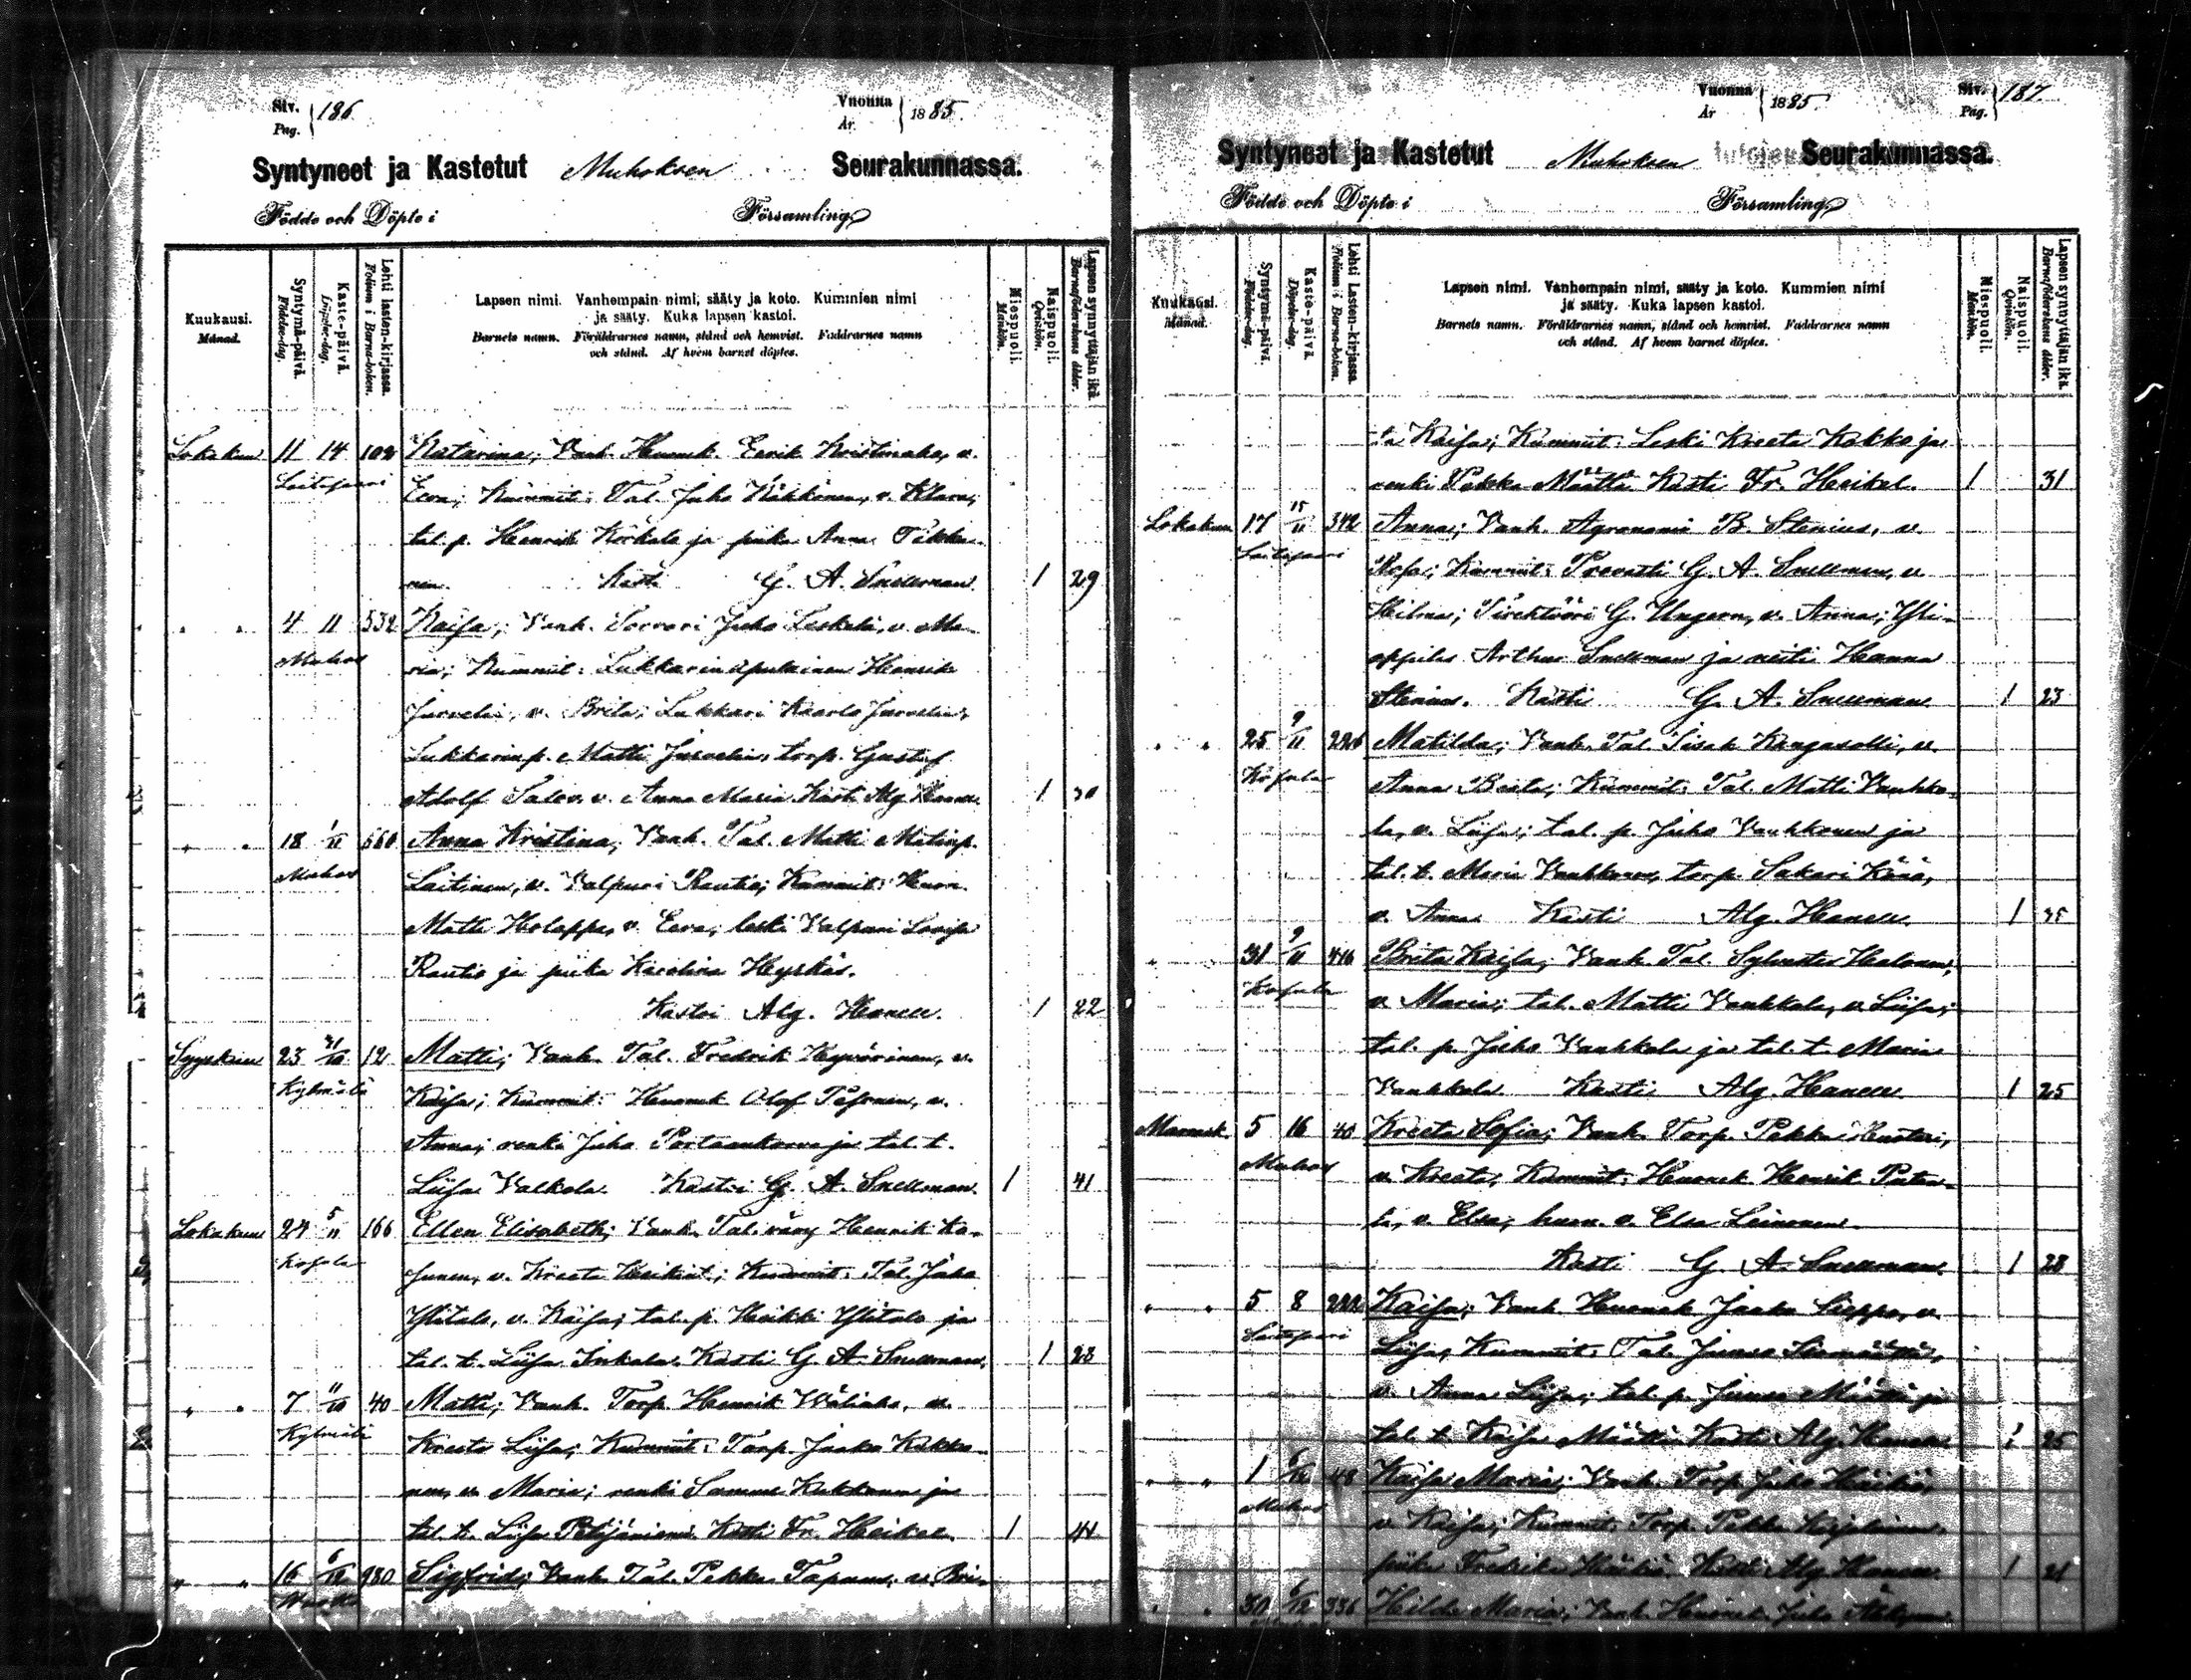 Siv. Pag. 186
Vuonna År 1885.
Syntyneet ja Kastetut Muhoksen Seurakunnassa.
Födde och Döpte i Församling
Kuukausi. Månad.
Syntymä-päivä. Födelse-dag.
Kaste-päivä. Döpelse-dag.
Lehti lasten-kirjassa. Folium i Barna-boken.
Lapsen nimi. Vanhempain nimi, sääty ja koto. Kummien nimi
ja sääty. Kuka lapsen kastoi.
Barnets namn. Föräldrarnes namn, stånd och hemvist. Faddrarnes namn
och stånd. Af hvem barnet döptes.
Miespuoli. Mankön.
Naispuoli. Qvinkön.
Lapsen synnyttäjän ikä. Barnaföderskans ålder.
Lokakuu 11 14 102 Katarina; Vanh. Huonek. Eerik Kristinaho, v.
Laitasaari Eeva; Kummit: Tal. Juho Näkkönen, v. Klara;
tal. p. Henrik Korkala ja piika Anna Tikka-
nen. Kasti G. A. Snellman 1 29
" " 4 11 532 Kaisa; Vanh. Sorvari Juho Leskelä, v. Ma-
Muhos ria; Kummit: Lukkarinapulainen Henrik
Jurvelin, v. Brita; Lukkari Kaarlo Jurvelin,
Lukkarinp. Matti Jurvelin, torp. Gustaf
Adolf Salo, v. Anna Maria. Kasti Alg. Hanell 1 30
" " 18 1/11 560 Anna Kristina; Vanh. Tal. Matti Matinp.
Muhos Laitinen, v. Valpuri Rautio; Kummit: Huon.
Matti Holappa, v. Eeva; leski Valpuri Lovisa
Rautio ja piika Karolina Hyrkäs.
Kastoi Alg. Hanell. 1 22
Syyskuu 23 12 Matti; Vanh. Tal. Fredrik Hyvärinen, v.
Kylmälä Kaisa; Kummit: Huonek Olof Tafonen, v.
Anna; renki Juho Portaankorva ja tal. t.
Liisa Valkola. Kastoi G. A. Snellman. 1 41
Lokakuu 24 5/11 166 Ellen Elisabeth; Vanh. Tal. vävy Henrik Ka-
Kosula junen, v. Kreeta Heikint.; Kummit: Tal. Juho
Ylitalo, v. Kaisa; tal. p. Heikki Ylitalo ja
tal. t. Liisa Inkala. Kasti G. A. Snellman. 1 28
" " 7 40 Matti; Vanh. Torp. Henrik Wäliaho, v.
Kylmälä Kreeta Liisa; Kummit: Torp. Jaako Kukko-
nen, v. Maria; renki Kukkonen ja
tal. t. Liisa Petäjäniemi Kasti Fr. Heikel. 1 44
" " 16 280 Sigfrid; Vanh. Tal. Pekka Tapani, v. Bri-
Siv. Pag. 187
Vuonna År 1885.
Syntyneet ja Kastetut Muhoksen Seurakunnassa.
Födde och Döpte i Församling
Kuukausi. Månad.
Syntymä-päivä. Födelse-dag.
Kaste-päivä. Döpelse-dag.
Lehti Lasten-kirjassa. Folium i Barna-boken.
Lapsen nimi. Vanhempain nimi, sääty ja koto. Kummien nimi
ja sääty. Kuka lapsen kastoi.
Barnets namn. Föräldrarnes namn, stånd och hemvist. Faddrarnes namn
och stånd. Af hvem barnet döptes.
Miespuoli. Mankön.
Naispuoli. Qvinkön.
Lapsen synnyttäjän ikä. Barnaföderskans ålder.
ta Kaisa; Kummit: Leski Kreeta Kokko ja
renki Pekka Määttä Kasti Fr. Heikel. 1 31
Lokakuu 17 15/11 342 Anna; Vanh. Agronomi B. Stenius, v.
Laitasaari Rosa; Kummit: Provasti G. A. Snellman, v.
Hilma; Tirehtööri G. Ungern, v. Anna; Yli-
oppilas Arthur Snellman ja neiti Hanna
Stenius. Kasti G. A. Snellman 1 23
" " 25 9/11 226 Matilda; Vanh. Tal. Iisak Kangasolli, v.
Kosula Anna Brita; Kummit: Tal. Matti Vanhka-
la, v. Liisa; tal. p. Juho Vanhkonen ja
tal. t. Maria Vanhkonen, torp. Sakari Känä,
v. Anna. Kasti Alg. Hanell. 1 35
" 31 9/11 416 Brita Kaisa; Vanh. Tal. Sylvester Halonen,
Kosula v. Maria; tal. Matti Vanhkala, v. Liisa;
tal. p. Juho Vanhkala ja tal. t. Maria
Vanhkala. Kasti Alg. Hanell. 1 25
Marrask. 5 16 40 Kreeta Sofia; Vanh. Torp. Pekka
Muhos v. Kreeta, Kummit: Huonek Henrik
la, v. Elsa; huon. v. Elsa Leinonen.
Kasti G. A. Snellman. 1 28
" " 5 8 222 Kaisa; Vanh. Huonek Jaako Lieppo, v.
Laitasaari Liisa, Kummit: Tal. Junno
v. Anna Liisa; tal. p. Junno Määttä ja
tal. t. Kaisa Määttä Kasti Alg. Hanell 1 25
" " 1 48 Kaisa Maria; Vanh. Torp. Juho
Muhos v. Kaisa; Kummit: Torp. Pekka
piika Fredrika Kasti Alg. Hanell. 1 21
" " 30 336 Hilda Maria; Vanh. Huonek. Juho